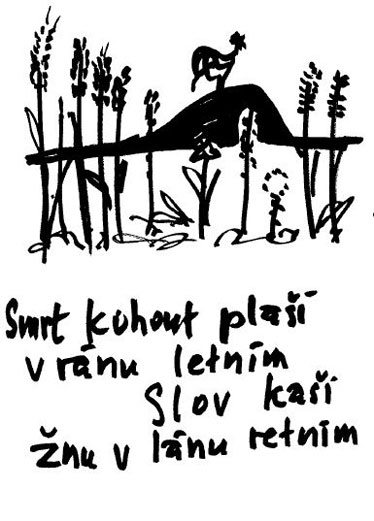 Smrt kohout plaší
v ránu letním
Slov kaší
žnu v lánu retním